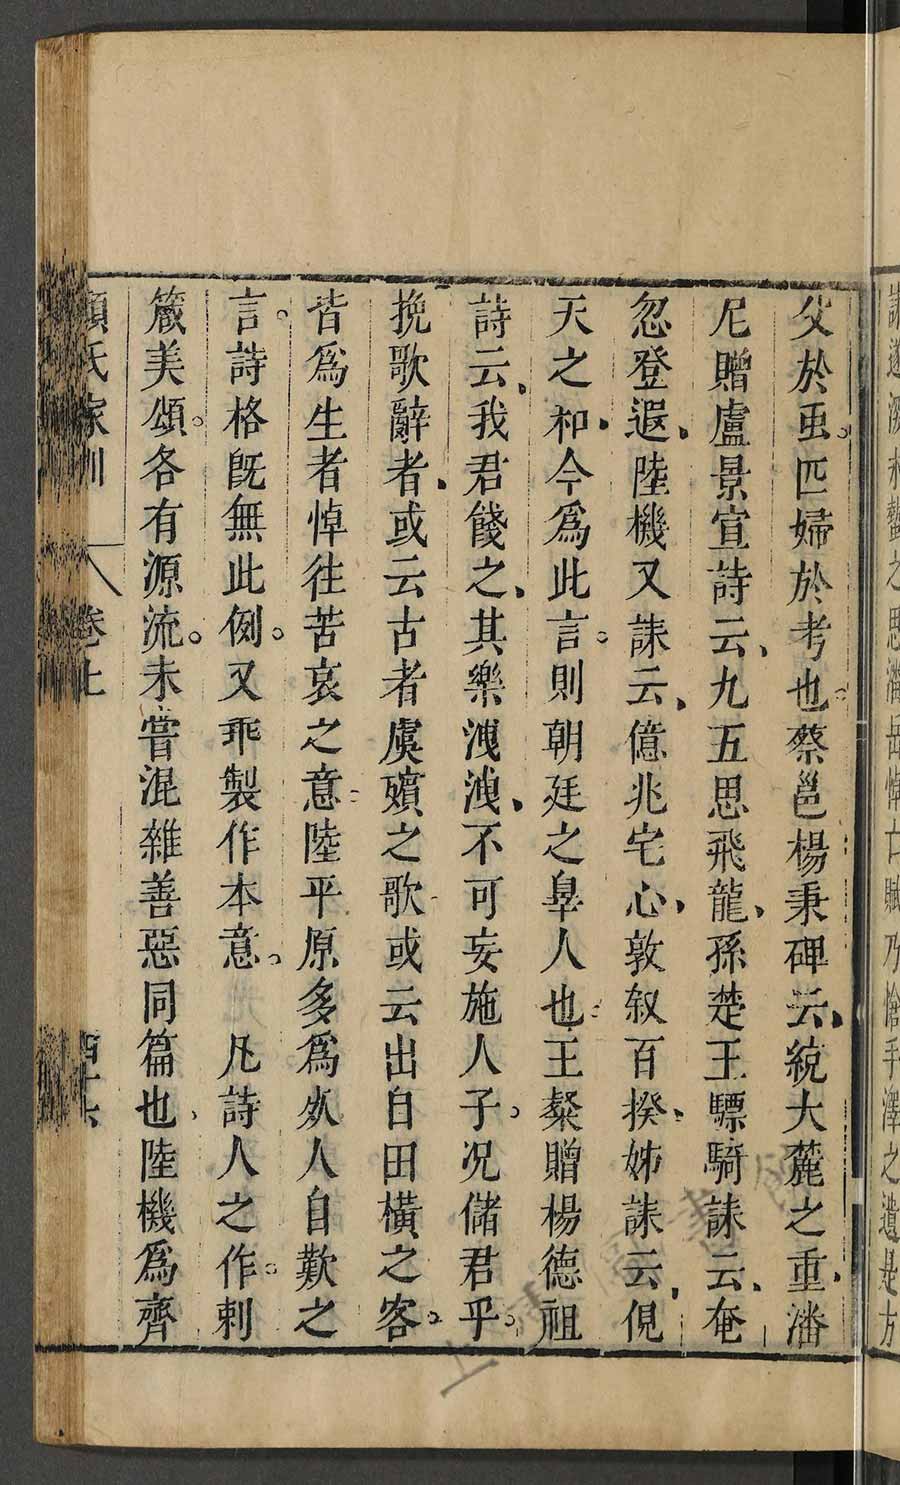 父於虫匹婦於考也蔡邕楊秉碑云統大麓之重潘
尼贈盧景宣詩云九五思飛龍孫楚王驃騎誄云奄
忽登遐陸機父誄云億兆宅心敦叙百揆姊誄云俔
天之和今為此言則朝廷之辠人也王粲贈楊德祖
詩云我君餞之其樂洩洩不可妄施人子况儲君乎
挽歌辭者或云古者虞殯之歌或云出自田橫之客
皆為生者悼往苦哀之意陸平原多為死人自歎之
言詩格旣無此例又乖製作本意 凡詩人之作刺
箴美頌各有源流未嘗混雜善惡同篇也陸機為齊
顏氏家訓 卷上